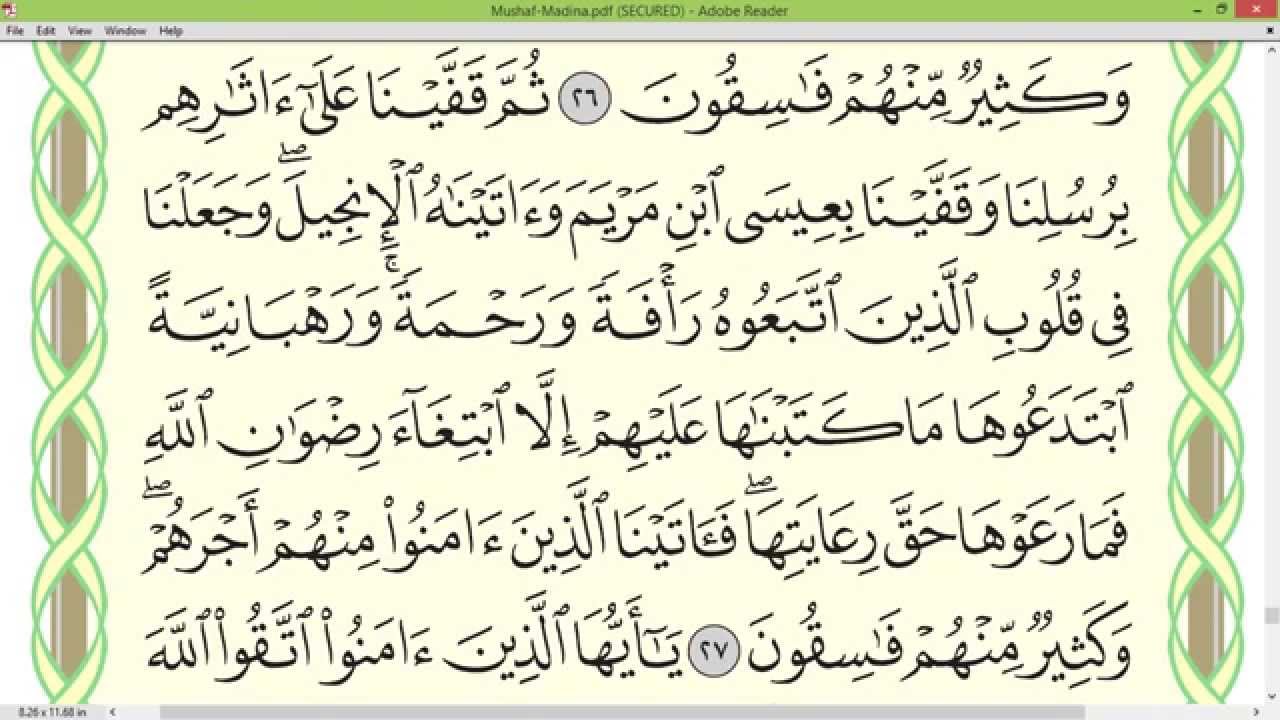 Mushaf-Madina.pdf (SECURED) - Adobe Reader
File Edit View Window Help
وَكَثِيرٌ مِّنْهُمْ فَٰسِقُونَ ٢٦ ثُمَّ قَفَّيْنَا عَلَىٰٓ ءَاثَٰرِهِم
بِرُسُلِنَا وَقَفَّيْنَا بِعِيسَى ٱبْنِ مَرْيَمَ وَءَاتَيْنَٰهُ ٱلْإِنجِيلَۖ وَجَعَلْنَا
فِى قُلُوبِ ٱلَّذِينَ ٱتَّبَعُوهُ رَأْفَةً وَرَحْمَةًۚ وَرَهْبَانِيَّةً
ٱبْتَدَعُوهَا مَا كَتَبْنَٰهَا عَلَيْهِمْ إِلَّا ٱبْتِغَآءَ رِضْوَٰنِ ٱللَّهِ
فَمَا رَعَوْهَا حَقَّ رِعَايَتِهَاۖ فَـَٔاتَيْنَا ٱلَّذِينَ ءَامَنُوا۟ مِنْهُمْ أَجْرَهُمْۖ
وَكَثِيرٌ مِّنْهُمْ فَٰسِقُونَ ٢٧ يَٰٓأَيُّهَا ٱلَّذِينَ ءَامَنُوا۟ ٱتَّقُوا۟ ٱللَّهَ
8.26 x 11.68 in